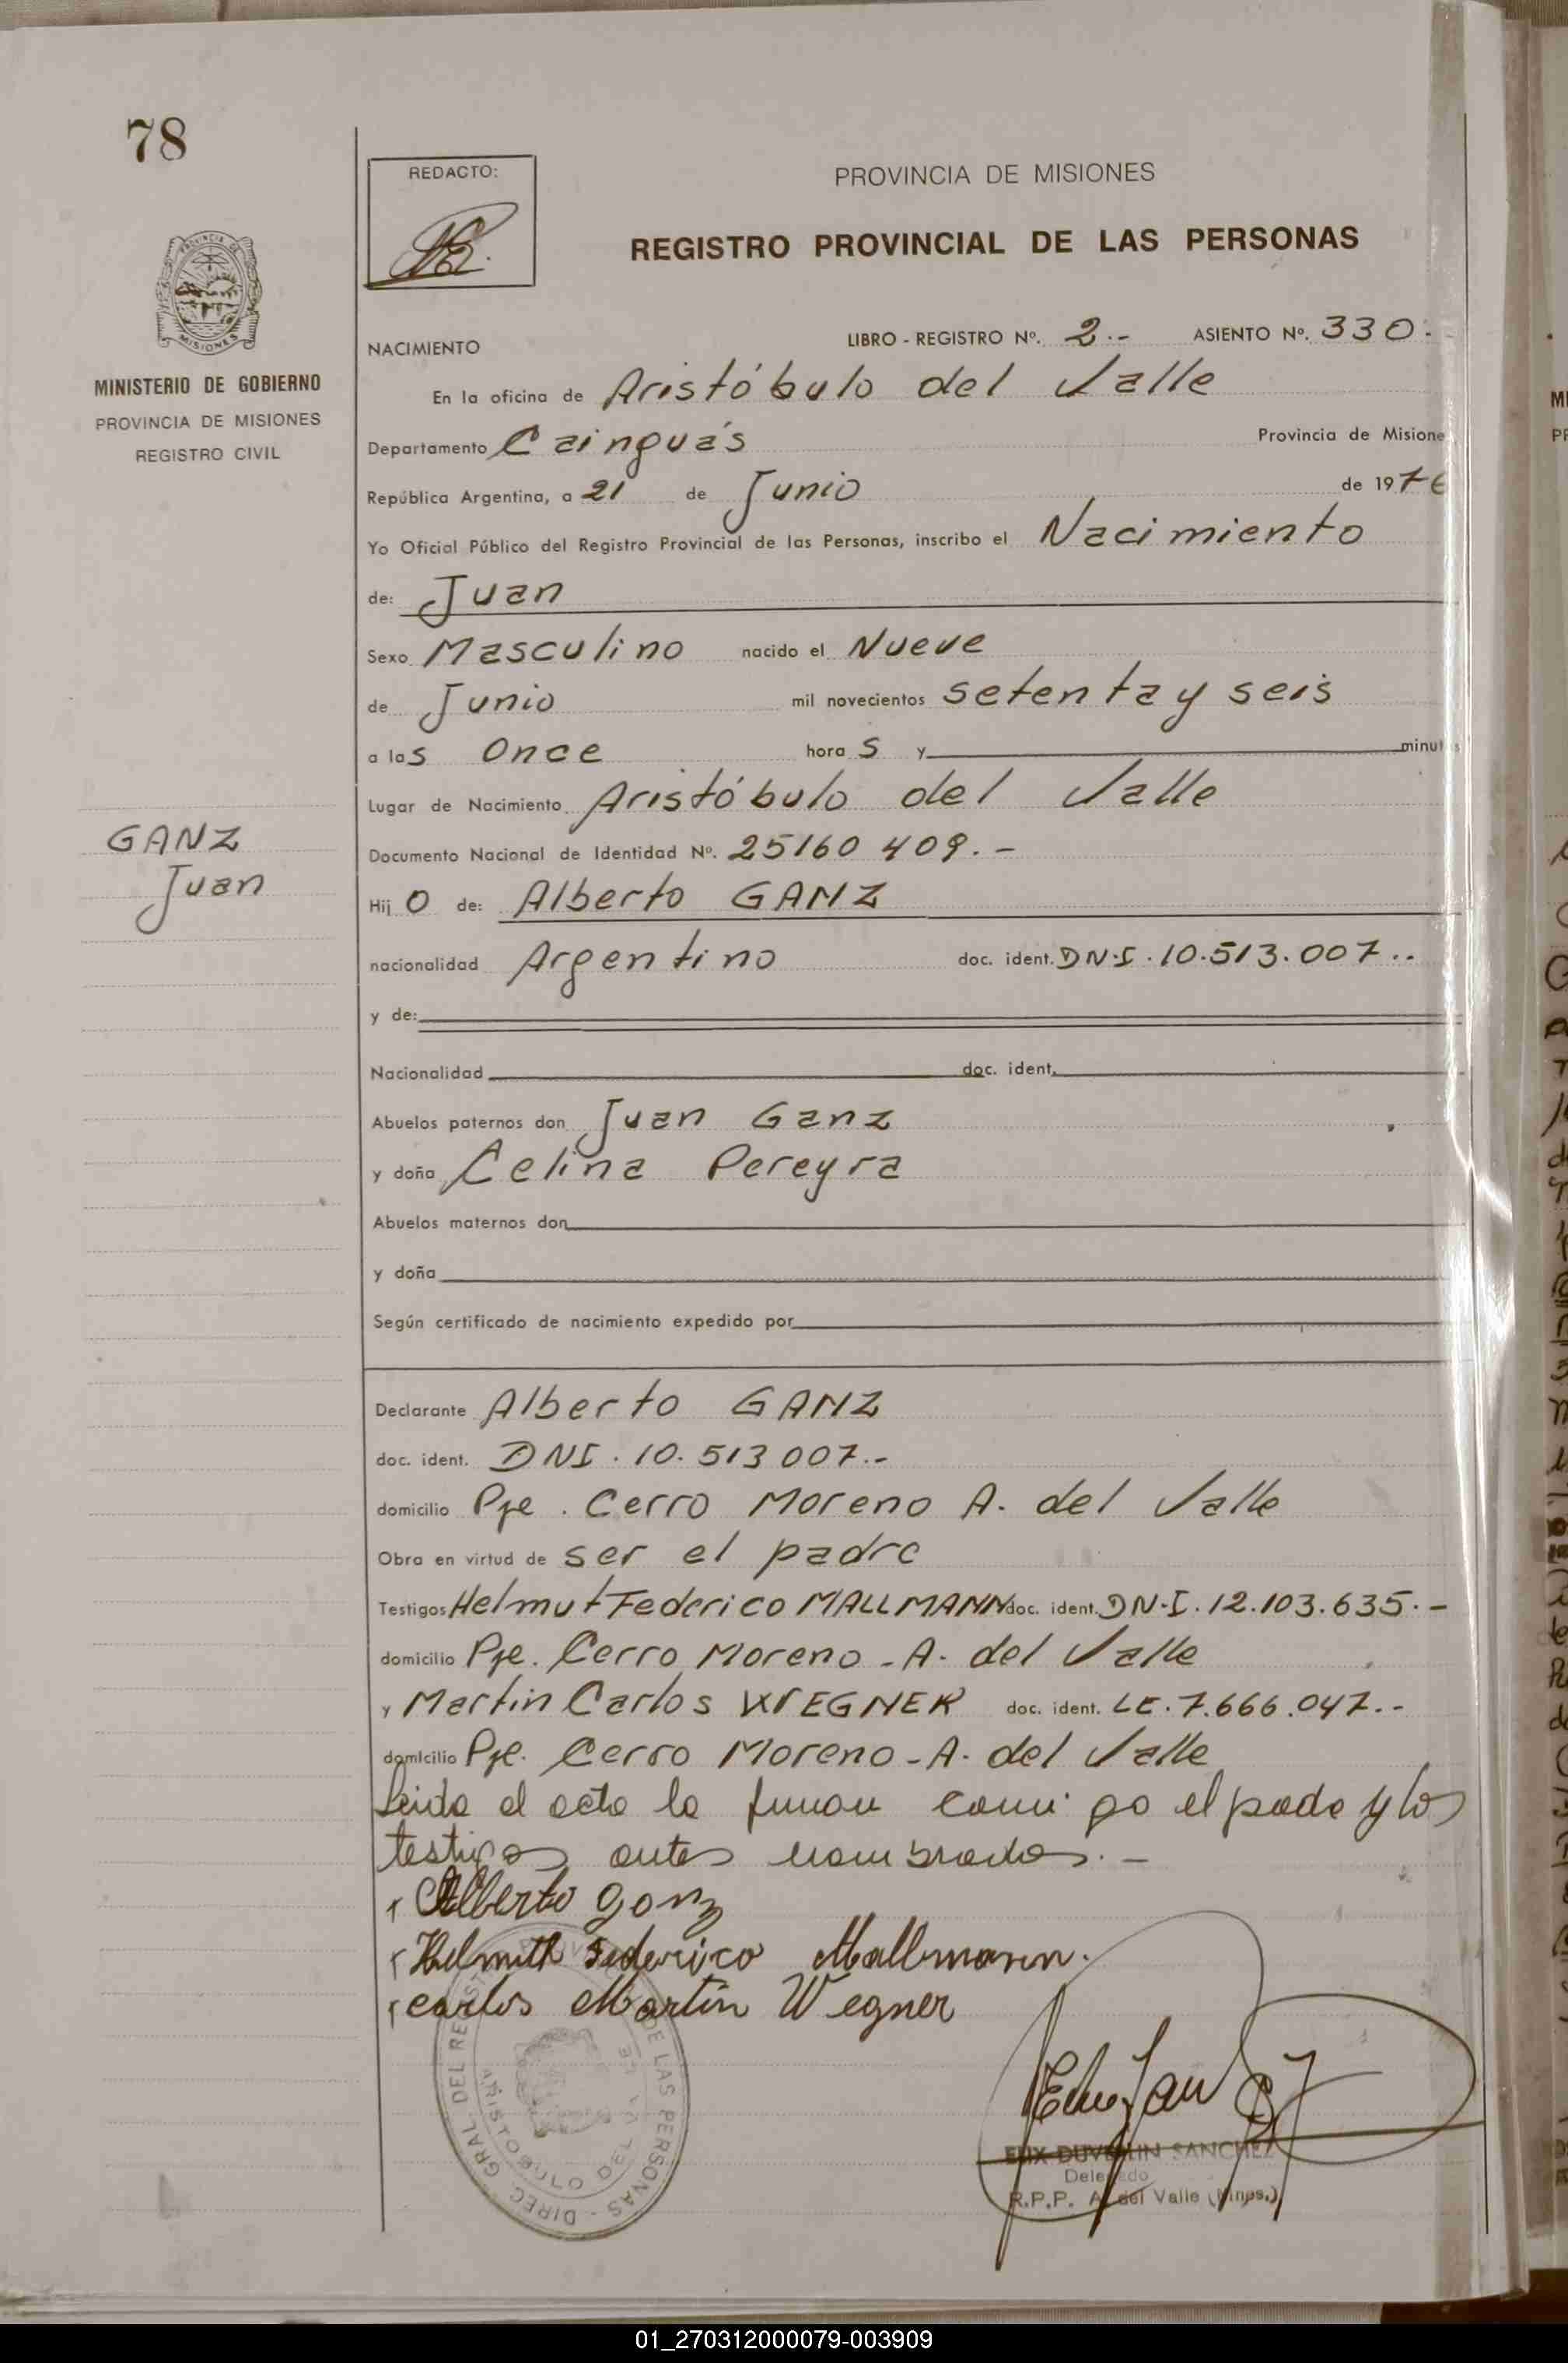 78
REDACTO:
PROVINCIA DE MISIONES
REGISTRO PROVINCIAL DE LAS PERSONAS
PROVINCIA DE
MISIONES
MINISTERIO DE GOBIERNO
PROVINCIA DE MISIONES
REGISTRO CIVIL
NACIMIENTO
LIBRO - REGISTRO Nº. 2.- ASIENTO Nº. 330.
En la oficina de Aristóbulo del Valle
Departamento Cainguás Provincia de Misione
República Argentina, a 21 de Junio de 1976
Yo Oficial Público del Registro Provincial de las Personas, inscribo el Nacimiento
de: Juan
Sexo Masculino nacido el Nueve
de Junio mil novecientos setenta y seis
a las Once horas y minut
Lugar de Nacimiento Aristóbulo del Valle
GANZ
Juan
Documento Nacional de Identidad Nº. 25160 409.-
Hijo de: Alberto GANZ
nacionalidad Argentino doc. ident. DN.I. 10.513.007..
y de:
Nacionalidad doc. ident.
Abuelos paternos don Juan Ganz
y doña Celina Pereyra
Abuelos maternos don
y doña
Según certificado de nacimiento expedido por
Declarante Alberto GANZ
doc. ident. DNI. 10. 513 007.-
domicilio Pje. Cerro Moreno A. del Valle
Obra en virtud de ser el padre
Testigos Helmut Federico MALLMANN doc. ident. DN.I. 12.103.635.-
domicilio Pje. Cerro Moreno - A. del Valle
y Martin Carlos WEGNER doc. ident. LE. 7.666.047.-
domicilio Pje. Cerro Moreno - A. del Valle
Leida el acta la firman conmigo el padre y los
testigos antes nombrados.-
Alberto Ganz
Helmuth Federico Mallmann.
Carlos Martin Wegner
DIREC. GRAL. DEL REGISTRO DE LAS PERSONAS
ARISTOBULO DEL VALLE
SANCHEZ
Delegado
R.P.P. A. del Valle (Mnes.)
01_270312000079-003909